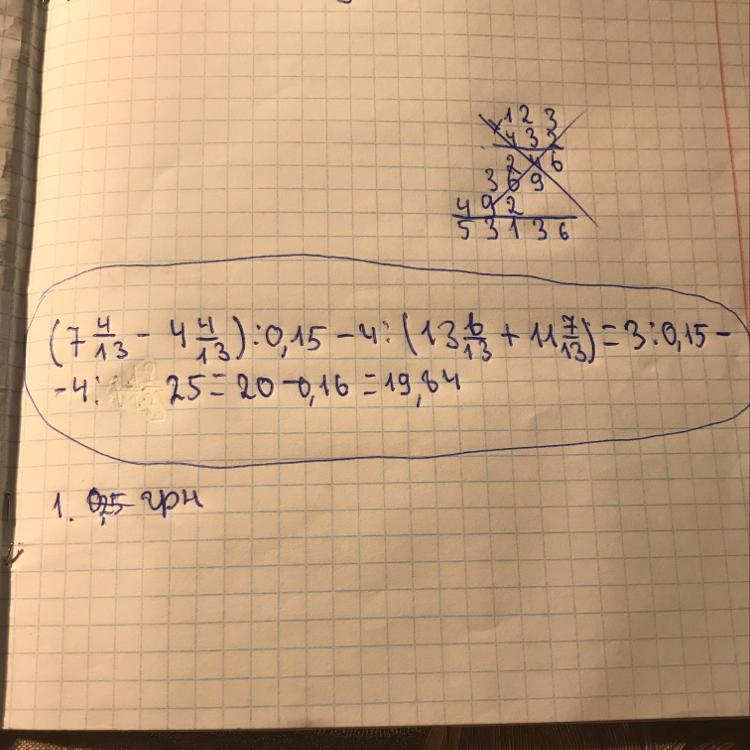 123
432
246
369
492
53136
(7 4/13 - 4 4/13) : 0,15 - 4 : (13 6/13 + 11 7/13) = 3 : 0,15 -
- 4 : 25 = 20 - 0,16 = 19,84
1. 0,25 грн